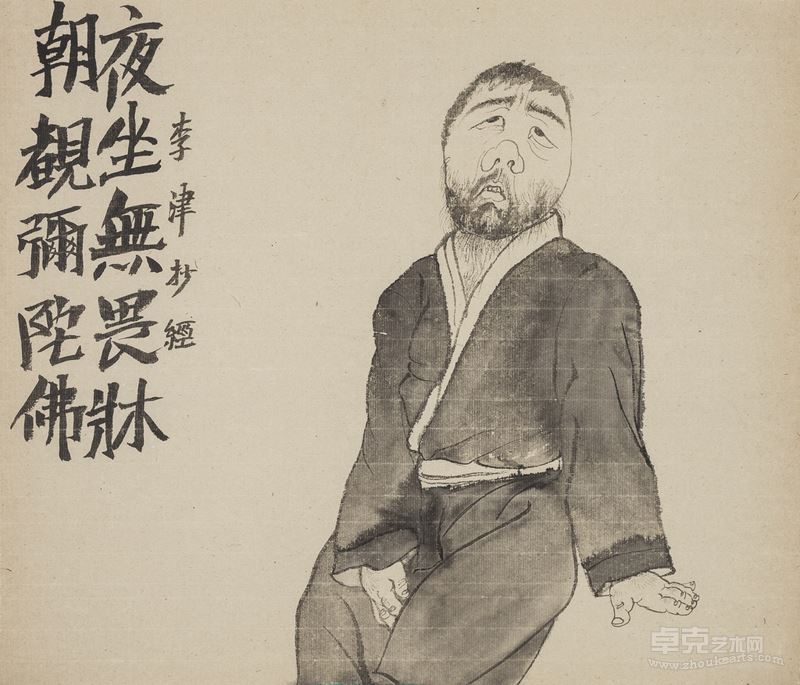 朝覩彌陀佛
夜坐無畏牀
李津抄經
卓克艺术网
www.zhoukearts.com